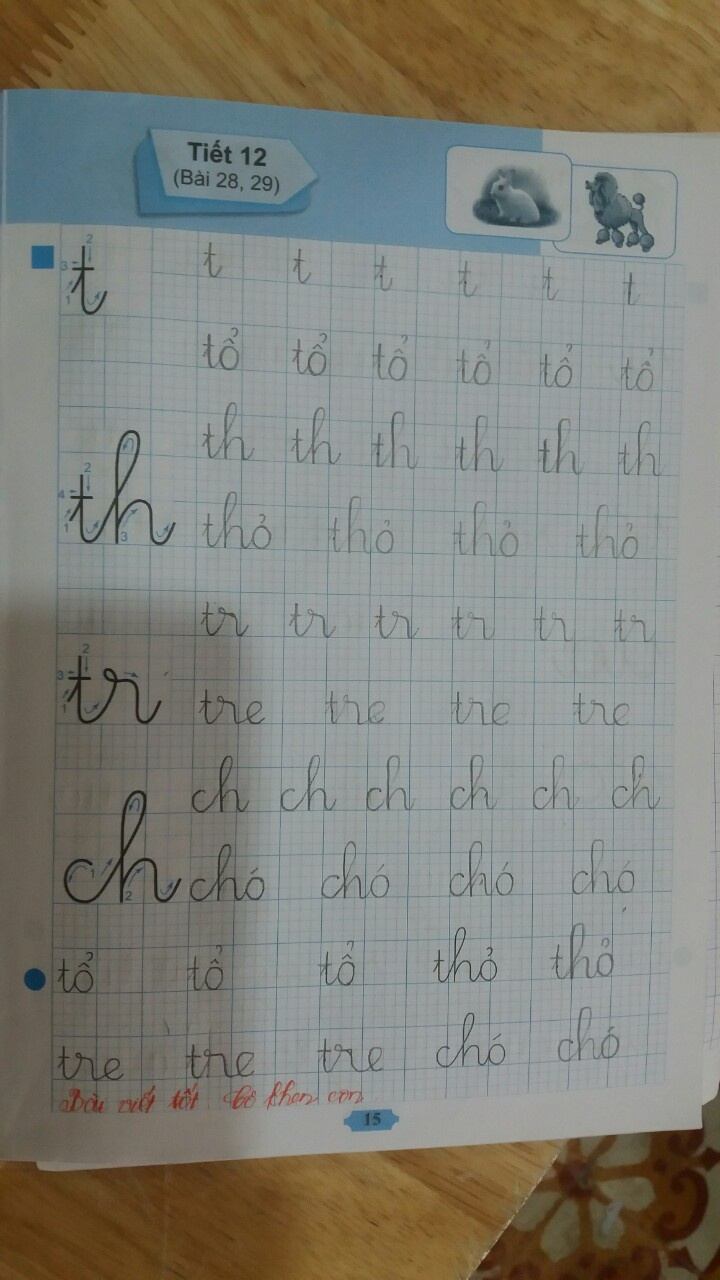 Tiết 12
(Bài 28, 29)
t t t t t t t
tổ tổ tổ tổ tổ tổ
th th th th th th th
thỏ thỏ thỏ thỏ
tr tr tr tr tr tr tr
tre tre tre tre
ch ch ch ch ch ch ch
chó chó chó chó
tổ tổ tổ thỏ thỏ
tre tre tre chó chó
Bài viết tốt. Cô khen con
15